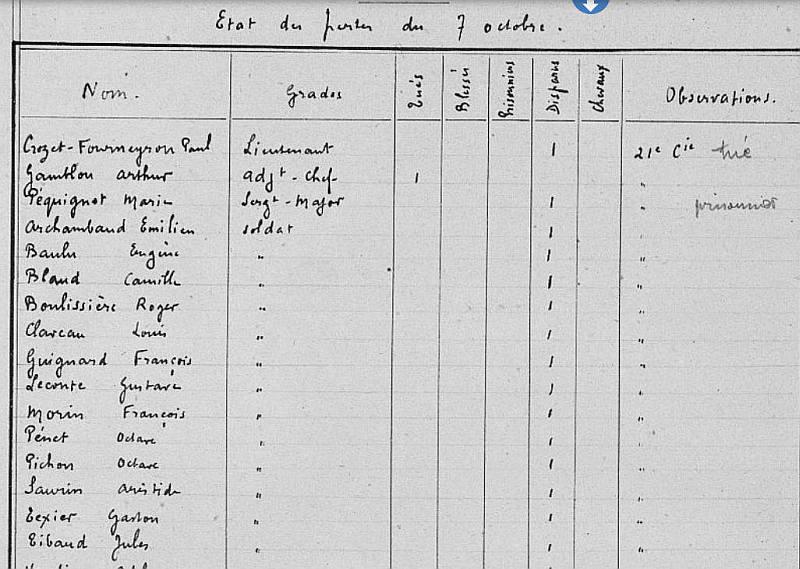 Etat des pertes du 7 octobre.
Nom. Grades Tués Blessés Prisonniers Disparus Chevaux Observations.
Crozet-Fourneyron Paul Lieutenant 1 21e Cie tué
Gamblon Arthur adjt-chef 1 "
Péquignot Marie Sergt-Major 1 " prisonnier
Archambaud Emilien soldat 1 "
Baulu Eugène " 1 "
Bland Camille " 1 "
Boulissière Roger " 1 "
Clareau Louis " 1 "
Guignard François " 1 "
Leconte Gustave " 1 "
Morin François " 1 "
Pénet Octave " 1 "
Pichon Octave " 1 "
Saurin Aristide " 1 "
Texier Gaston " 1 "
Tibaud Jules " 1 "